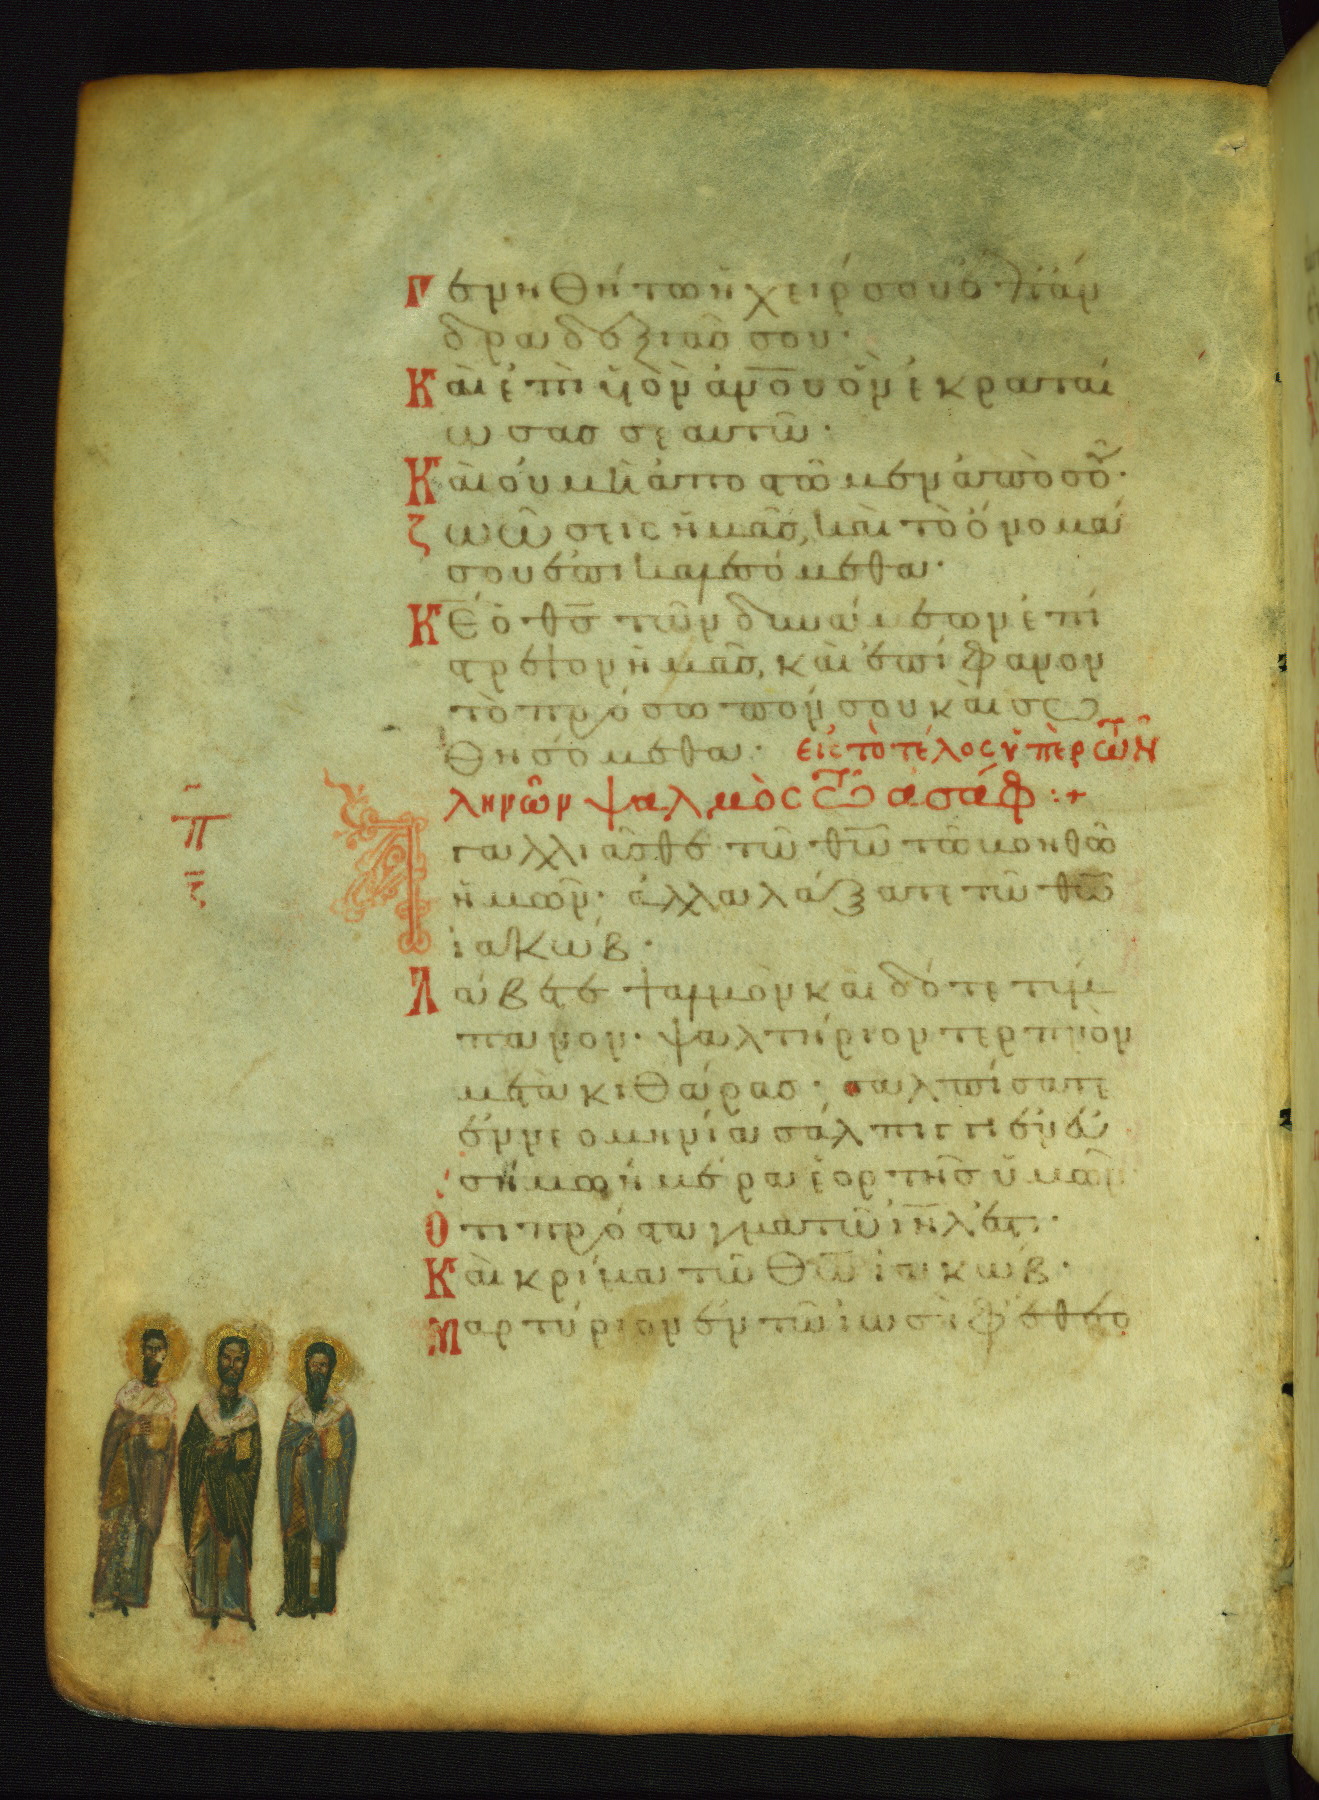 Γενηθήτω ἡ χείρ σου ἐπ' ἄν
δρα δεξιᾶς σου·
Κὰι ἐπὶ υἱὸν ἀν̅ο̅υ ὃν ἐκραταί
ωσας σεαυτῶ·
Κὰι ὀυ μὴ ἀποστῶμεν ἀπὸ σοῦ·
ζωώσεις ἡμᾶς, κὰι τὸ ὄνομά
σου ἐπικαλεσόμεθα·
Κ̅Ε̅ ὁ θ̅ς̅ τῶν δυνάμεων ἐπί
στρεψον ἡμᾶς, κὰι ἐπίφανον
τὸ πρόσωπόν σου κὰι σω
θησόμεθα· εἰς τὸ τέλος ὑπὲρ τῶν
ληνῶν ψαλμὸς τῶ ἀσάφ :+
π
Ἀγαλλιᾶσθε τῶ θ̅ω̅ τῶ βοηθῶ
ἡμῶν· ἀλλαλάξατε τῶ θ̅ω̅
ἰακώβ·
Λάβετε ψαλμὸν κὰι δότε τύμ
πανον· ψαλτήριον τερπνὸν
μετὰ κιθάρας· σαλπίσατε
ἐν νεομηνία σάλπιγγι ἐν ἐυ
σήμω ἡμέρα ἑορτῆς ὑμῶν
Ὅτι πρόσταγμα τῶ ι̅η̅λ̅ ἐστι·
Κὰι κρίμα τῶ Θ̅ω̅ ἰακώβ·
Μαρτύριον ἐν τῶ ἰωσὴφ ἔθετο